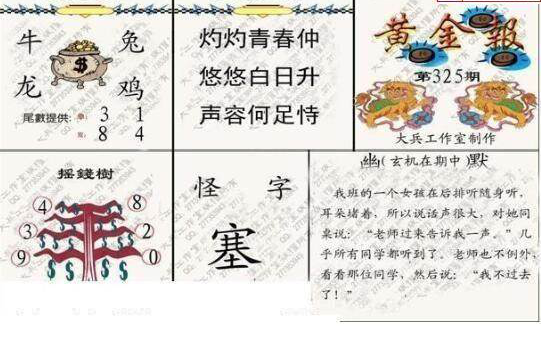 牛 兔
龙 鸡
尾數提供: 3 1
8 4
灼灼青春仲
悠悠白日升
声容何足恃
黄金報
第325期
大兵工作室制作
摇錢樹
4 8
3 2
9 0
怪 字
塞
幽(玄机在期中 默
我班的一个女孩在后排听随身听，
耳朵堵着，所以说话声很大，对她同
桌说：“老师过来告诉我一声。”几
乎所有同学都听到了。老师也不例外，
看看那位同学，然后说：“我不过去
了！”